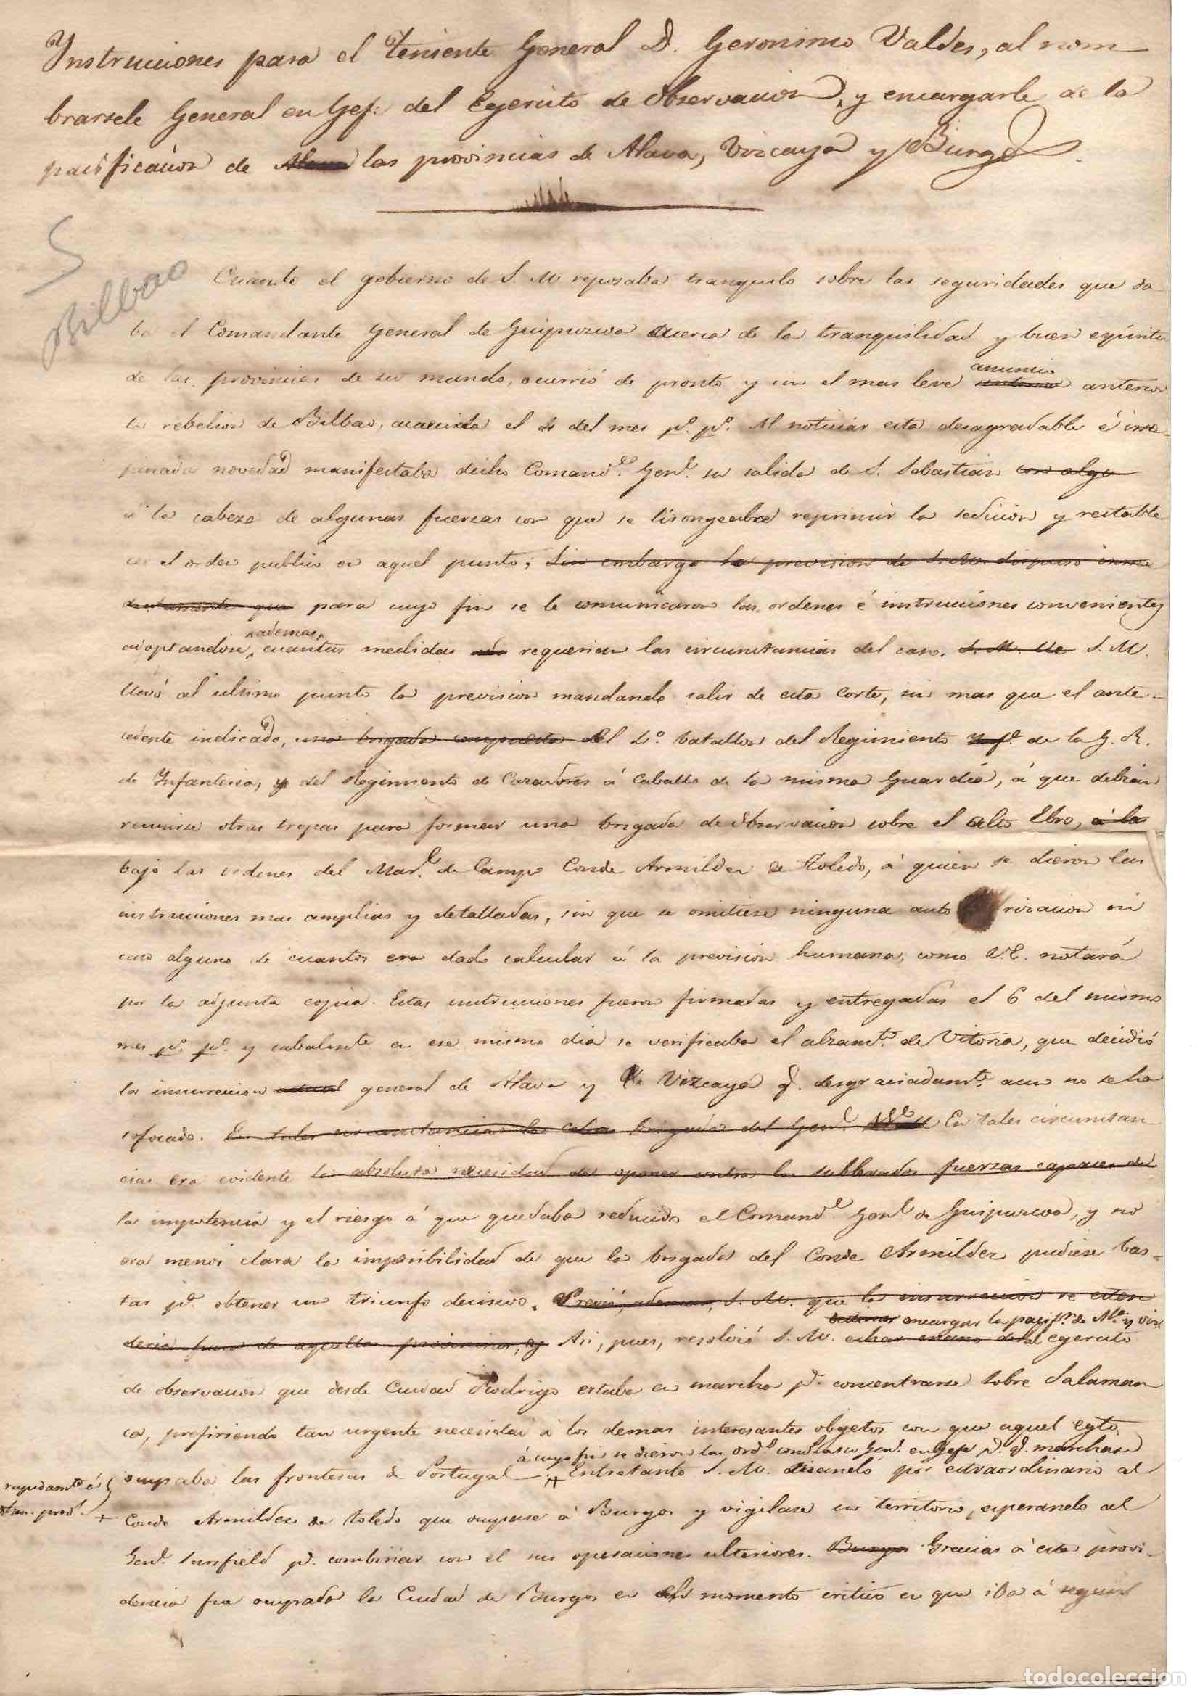 Instrucciones para el Teniente General D. Geronimo Valdes, al nom
brarsele General en Gefe del Egercito de Observacion, y encargarle de la
pacificacion de Alava las provincias de Alava, Vizcaya y Burgos.
5
Bilbao
Cuando el gobierno de S. M. reposaba tranquilo sobre las seguridades que da
ba el Comandante General de Guipuzcoa acerca de la tranquilidad y buen espiritu
anuncio
de las provincias de su mando, ocurrió de pronto y sin el mas leve anterior
la rebelion de Bilbao, acaecida el 4 del mes pº. pº. Al noticiar esta desagradable é ines
perada novedad manifestaba dicho Comandte. Genl. su salida de S. Sebastian con algu
á la cabeza de algunas fuerzas con que se lisongeaba reprimir la sedicion y restable
cer el orden publico en aquel punto; Sin embargo la prevision de S. M. dispuso inme
diatamente que para cuyo fin se le comunicaron las ordenes é instrucciones convenientes
ademas
adoptandose cuantas medidas requerian las circunstancias del caso. S. M. S. M.
llevó al ultimo punto la prevision mandando salir de esta Corte, sin mas que el ante-
cedente indicado, una brigada compuesta del el 4º. batallon del Regimiento de la G. R.
de Infanteria, y del Regimiento de Cazadores á Caballo de la misma Guardia, á que debian
reunirse otras tropas para formar una brigada de observacion sobre el alto Ebro, á la
bajo las ordenes del Marl. de Campo Conde Armildez de Toledo, á quien se dieron las
instrucciones mas amplias y detalladas, sin que se omitiese ninguna auto rizacion en
caso alguno de cuantos era dado calcular á la prevision humana, como V.E. notará
por la adjunta copia. Estas instrucciones fueron firmadas y entregadas el 6 del mismo
mes pº. pº. y cabalmente en ese mismo dia se verificaba el alzamto. de Vitoria, que decidió
la insurreccion actual general de Alava y de Vizcaya q. desgraciadamte. aun no se ha
sofocado. En tales circunstancias la corta brigada del Genl. En tales circunstan
cias era evidente la absoluta necesidad de oponer contra los sublevados fuerzas capaces de
la impotencia y el riesgo á que quedaba reducido el Comandte. Genl. de Guipuzcoa, y no
era menos clara la imposibilidad de que la brigada del Conde Armildez pudiese bas-
tar pª. obtener un triunfo decisivo. Previó, ademas, S. M. que la insurreccion se esten
encargar la pacifn. de Alª. y Vizc
deria fuera de aquellas provincias, y Asi, pues, resolvió S. M. echar mano del al egercito
de observacion que desde Ciudad Rodrigo estaba en marcha pª. concentrarse sobre Salaman
ca, prefiriendo tan urgente necesidad á los demas interesantes objetos con que aquel egto.
á cuyo fin se dieron las ords. conds. á su Genl. en Gefe pª. q. marchase
ocupaba las fronteras de Portugal. Entretanto S. M. mandó por extraordinario al
rapidamte. á
Conde Armildez de Toledo que ocupase á Burgos y vigilase su territorio, esperando al
Genl. Sarsfield pª. combinar con él sus operaciones ulteriores. Burgos Gracias á esta provi-
dencia fue ocupada la Ciudad de Burgos en el momento critico en que iba á seguir
todocoleccion